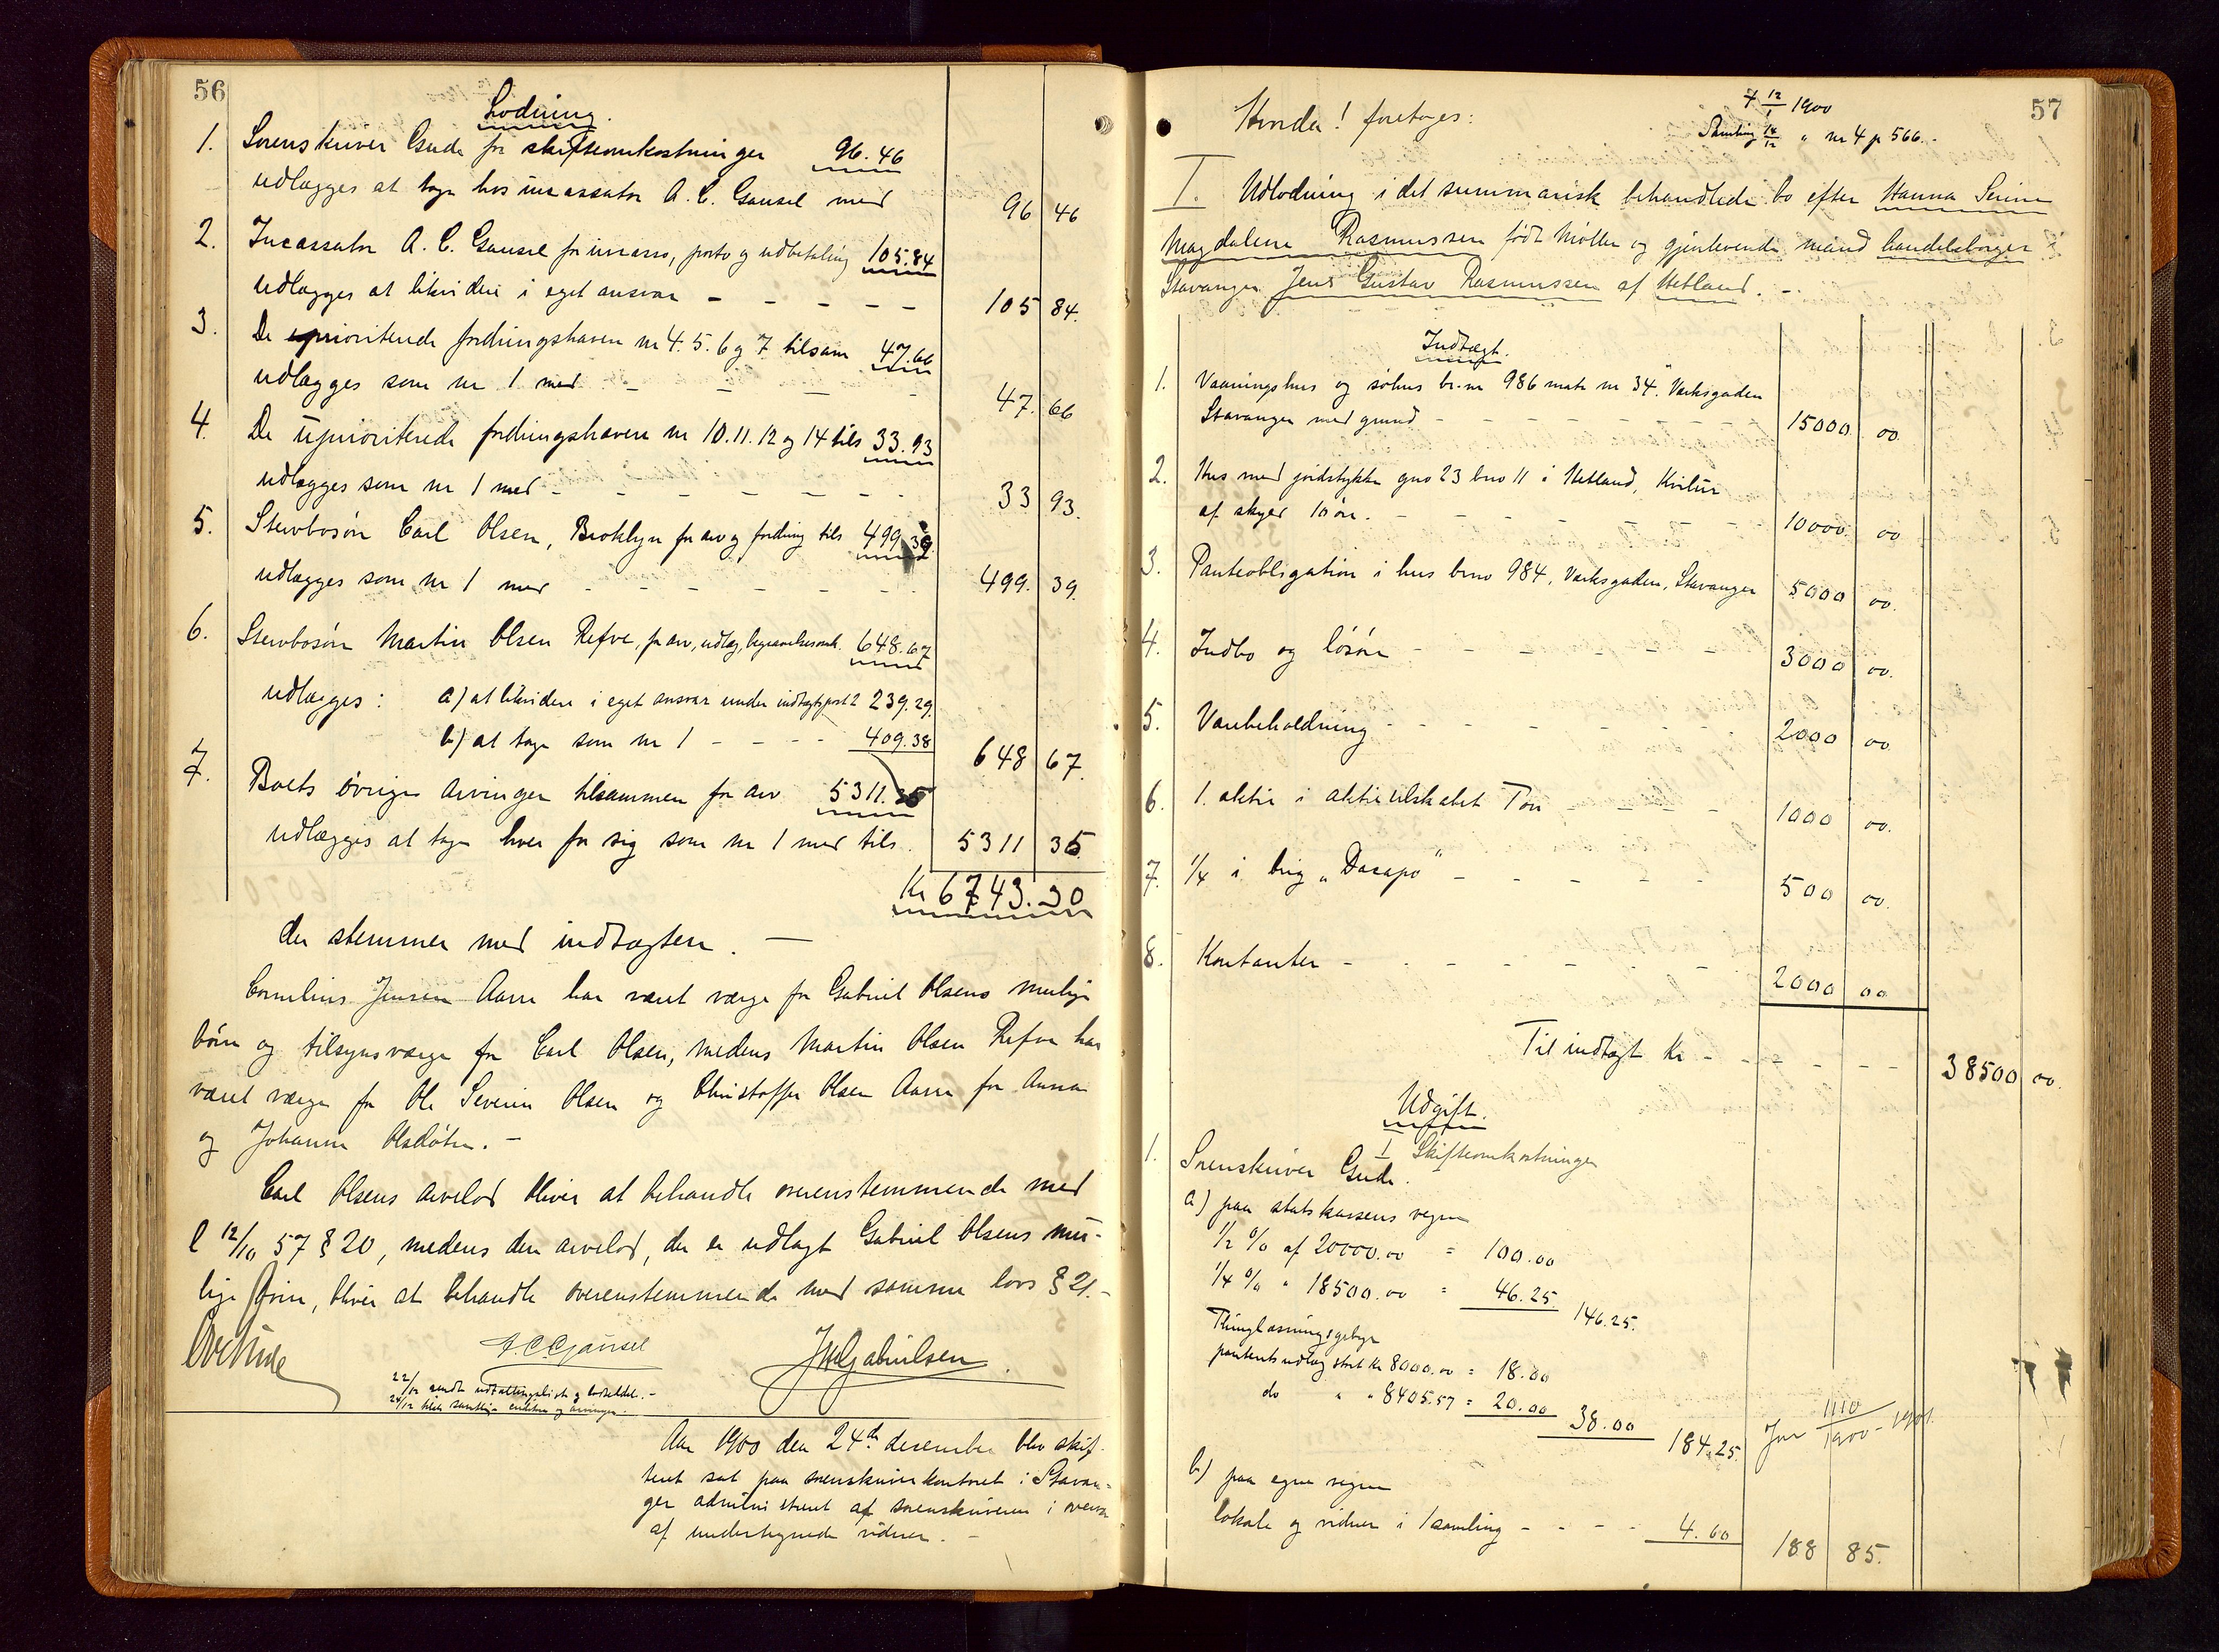 56
Lodning.
1. Sorenskriver Gude for skifteomkostninger 96.46
udlægges at tage hos incassator A. C. Gausel med 96 46
2. Incassator A. C. Gausel for incasso, porto og udbetaling 105.84
udlægges at likvidere i eget ansvar - - - - - 105 84.
3. De uprioriterede fordringshavere nr 4. 5. 6 og 7 tilsam 47.66
udlægges som nr 1 med - - - - 47. 66
4. De uprioriterede fordringshavere nr 10. 11. 12 og 14 tils 33.93
udlægges som nr 1 med - - - - - - 33 93.
5. Stervbosøn Carl Olsen, Broklyn for arv og fordring tils 499.39
udlægges som nr 1 med - - - - - - 499. 39.
6. Stervbosøn Martin Olsen Refve, for arv, udlæg, begravelsesomk. 648.67
udlægges: a) at likvidere i eget ansvar under indtægtspost 2 239.29.
b) at tage som nr 1 - - - - 409.38 648 67.
7. Boets øvrige arvinger tilsammen for arv 5311.35
udlægges at tage hver for sig som nr 1 med tils. 5311 35.
Kr 6743.30
der stemmer med indtægten. —
Cornelius Jensen Aarre har været værge for Gabriel Olsens mulige
børn og tilsynsværge for Carl Olsen, medens Martin Olsen Refve har
været værge for Ole Severin Olsen og Christoffer Olsen Aarre for Anna
og Johanne Olsdøtre. -
Carl Olsens arvelod bliver at behandle overensstemmende med
l 12/10 57 § 20, medens den arvelod, der er udlagt Gabriel Olsens mu-
lige børn, bliver at behandle overensstemmende med samme lovs § 21.-
Ove Gude A. C. Gausel J M Gabrielsen.
22/12 sendt udbetalingslist og lodseddel. -
24/12 samtlige creditorer og arvinger. -
Aar 1900 den 24de december blev skif-
teret sat paa sorenskriverkontoret i Stavan-
ger administreret af sorenskriveren i overvær
af undertegnede vidner. -
57
Hvorda! foretoges:
† 12/1 1900
Samling 14/12 " nr 4 p 566.-
I. Udlodning i det summarisk behandlede bo efter Hanna Serine
Magdalene Rasmussen født Møller og gjenlevende mand handelsborger i
Stavanger Jens Gustav Rasmussen af Hetland. -
Indtægt.
1. Vaaningshus og søhus br.nr 986 matr nr 34 Værksgaden
Stavanger med grund - - - - - - 15000. 00.
2. Hus med jordstykke gno 23 bno 11 i Hetland,
af skyld 10 øre. - - - - - - 10000. 00
3. Panteobligation i hus brno 984, Værksgaden, Stavanger 5000 00.
4. Indbo og løsøre - - - - - - 3000 00.
5. Varebeholdning - - - - - - 2000 00.
6. 1. aktie i aktieselskabet Tou - - - - 1000 00.
7. 1/4 i brig "Dasapo" - - - - - 500 00.
8. Kontanter - - - - - - - 2000 00
Til indtægt Kr - - - - - - 38500 00.
Udgift.
I Skifteomkostninger
1. Sorenskriver Gude.
a) paa statskassens vegne
1/2 % af 20000.00 = 100.00
1/4 % " 18500.00 = 46.25. 146.25.
Thinglæsningsgebyr
panterets udlæg stort kr 8000.00 = 18.00
do " " 8405.57 = 20.00 38.00 184.25. Jour 1110/1900 - 1901.
b) paa egne vegne
lokale og vidner i 1 samling - - - - 4.60 188 85.